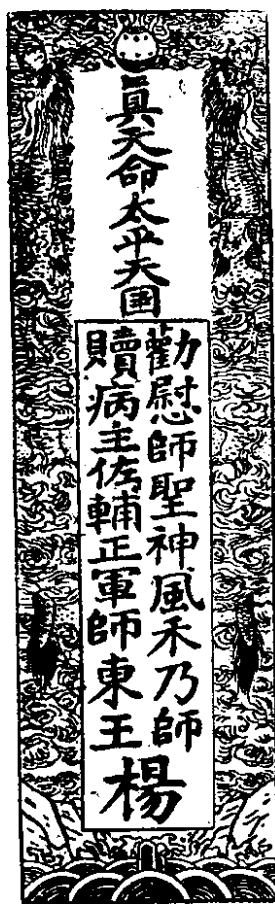 真天命太平天囯
勸慰師聖神風禾乃師
贖病主佐輔正軍師東王
楊